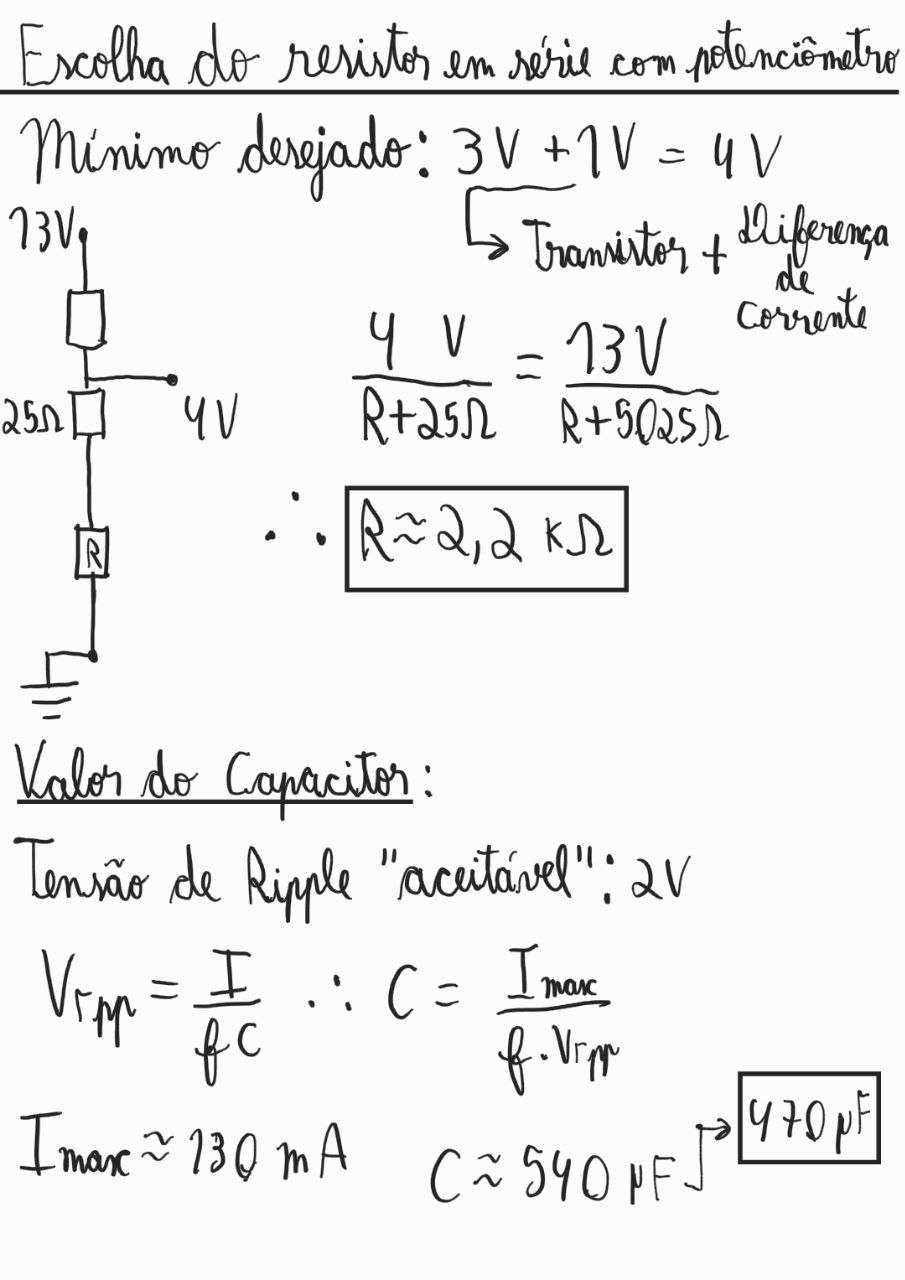 Escolha do resistor em série com potenciômetro
Mínimo desejado: 3V + 1V = 4V
Transistor + Diferença de corrente
13V
25Ω
4V
R
4 V / R+25Ω = 13V / R+5025Ω
∴ R≈2,2 kΩ
Valor do Capacitor:
Tensão de Ripple "aceitável": 2V
Vrpp = I / f C ∴ C = Imax / f . Vrpp
Imax ≈ 130 mA
C ≈ 540 μF
470 μF